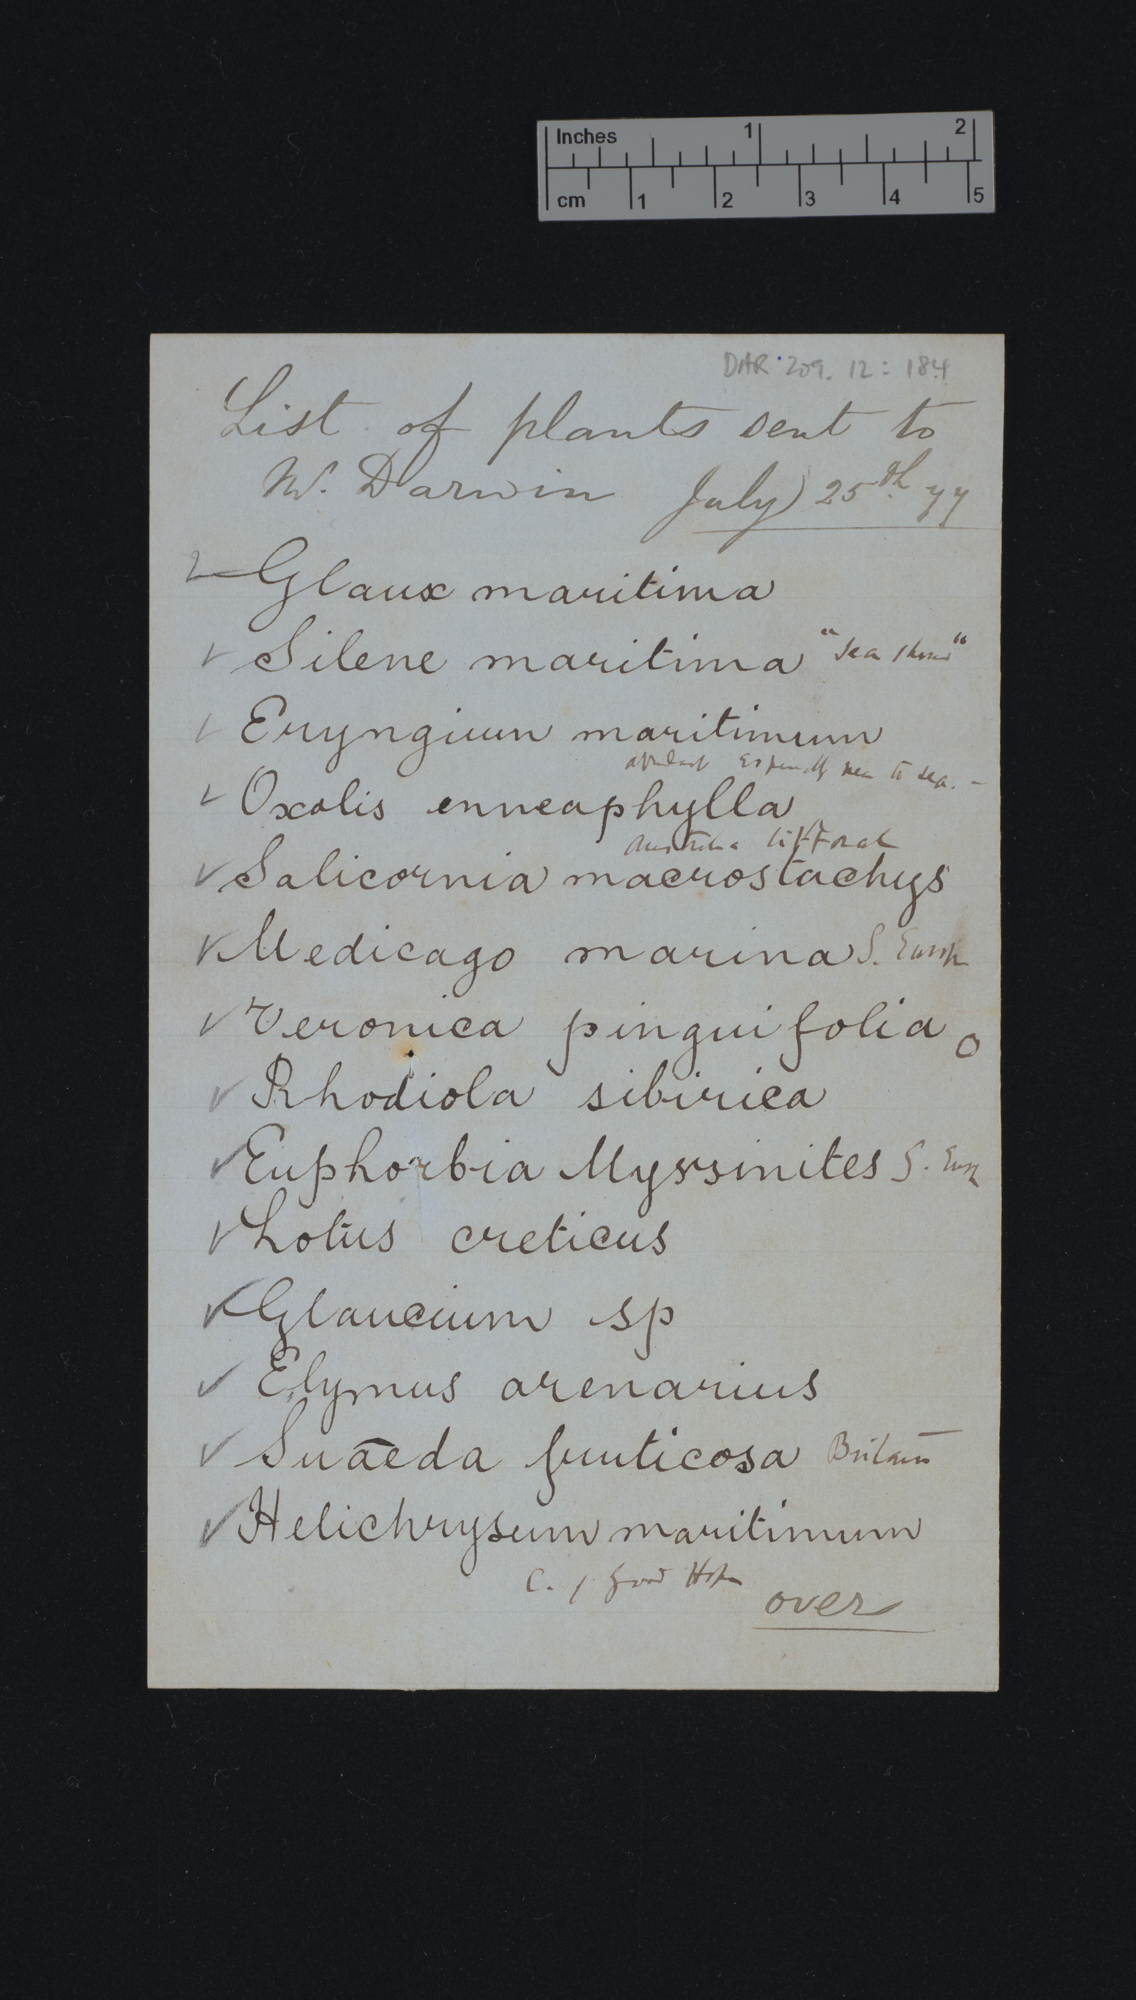 Inches 1 2
cm 1 2 3 4 5
DAR 209. 12: 184
List of plants sent to
M. Darwin July 25th 77
Glaux maritima
✓ Silene maritima "Sea shores"
✓ Eryngium maritimum
especially near to sea. -
✓ Oxalis enneaphylla
Australia littoral
✓ Salicornia macrostachys
✓ Medicago marina S. Europe
✓ Veronica pinguifolia o
✓ Rhodiola sibirica
✓ Euphorbia Myssinites S. Europe
✓ Lotus creticus
✓ Glaucium sp
✓ Elymus arenarius
✓ Suaeda fruticosa Britain
✓ Helichrysum maritimum
C. of Good Hope
over